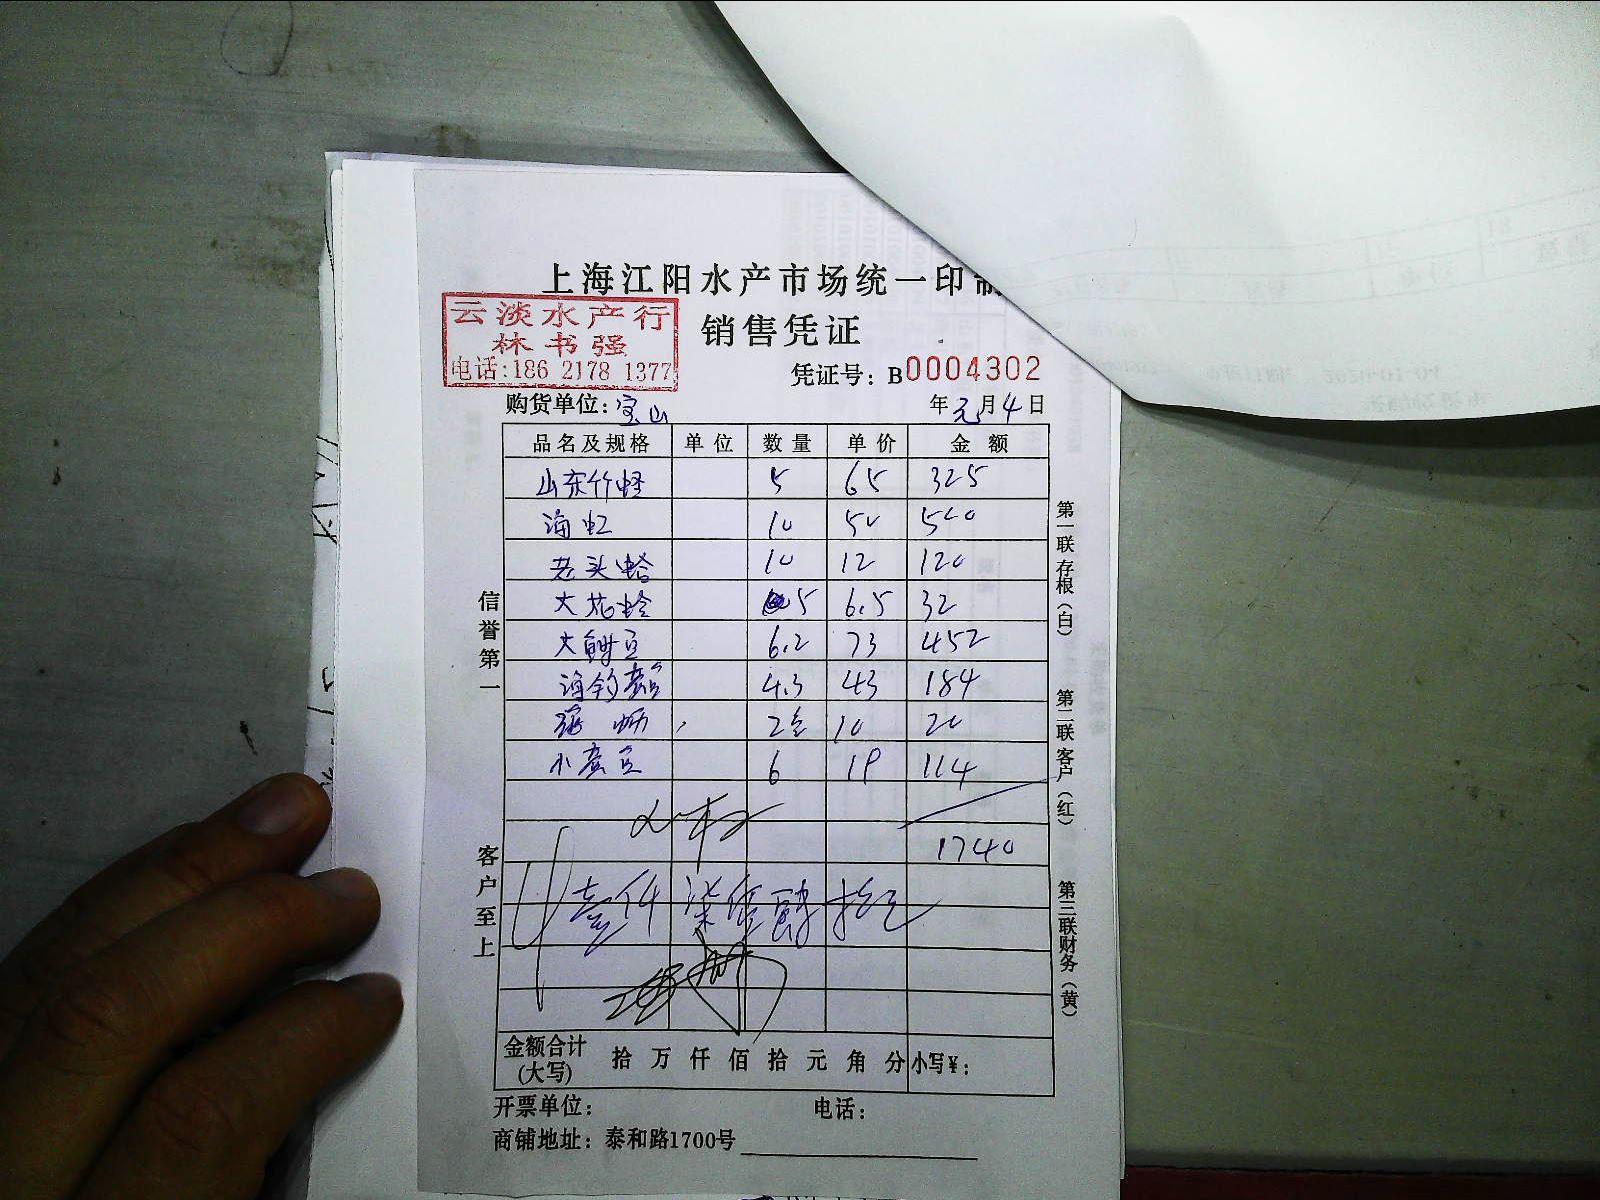 上海江阳水产市场统一印制
云淡水产行
林书强
电话:186 2178 1377
销售凭证
凭证号: B0004302
购货单位: 宝山 年元月4日
品名及规格 单位 数量 单价 金额
山东竹蛏 5 65 325
海虹 10 50 500
老头蛤 10 12 120
大花蛤 5 6.5 32
大 豆 6.2 73 452
海钓 4.3 43 184
2 10 20
小 豆 6 19 114
1740
壹仟柒佰肆拾元
信誉第一
客户至上
第一联存根(白)
第二联客户(红)
第三联财务(黄)
金额合计(大写) 拾 万 仟 佰 拾 元 角 分 小写¥:
开票单位: 电话:
商铺地址: 泰和路1700号